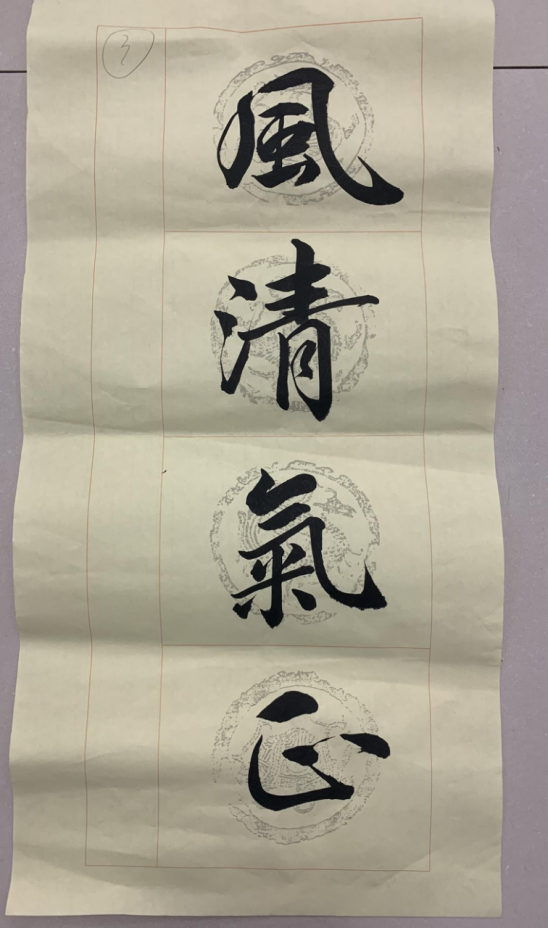 3
風清氣正